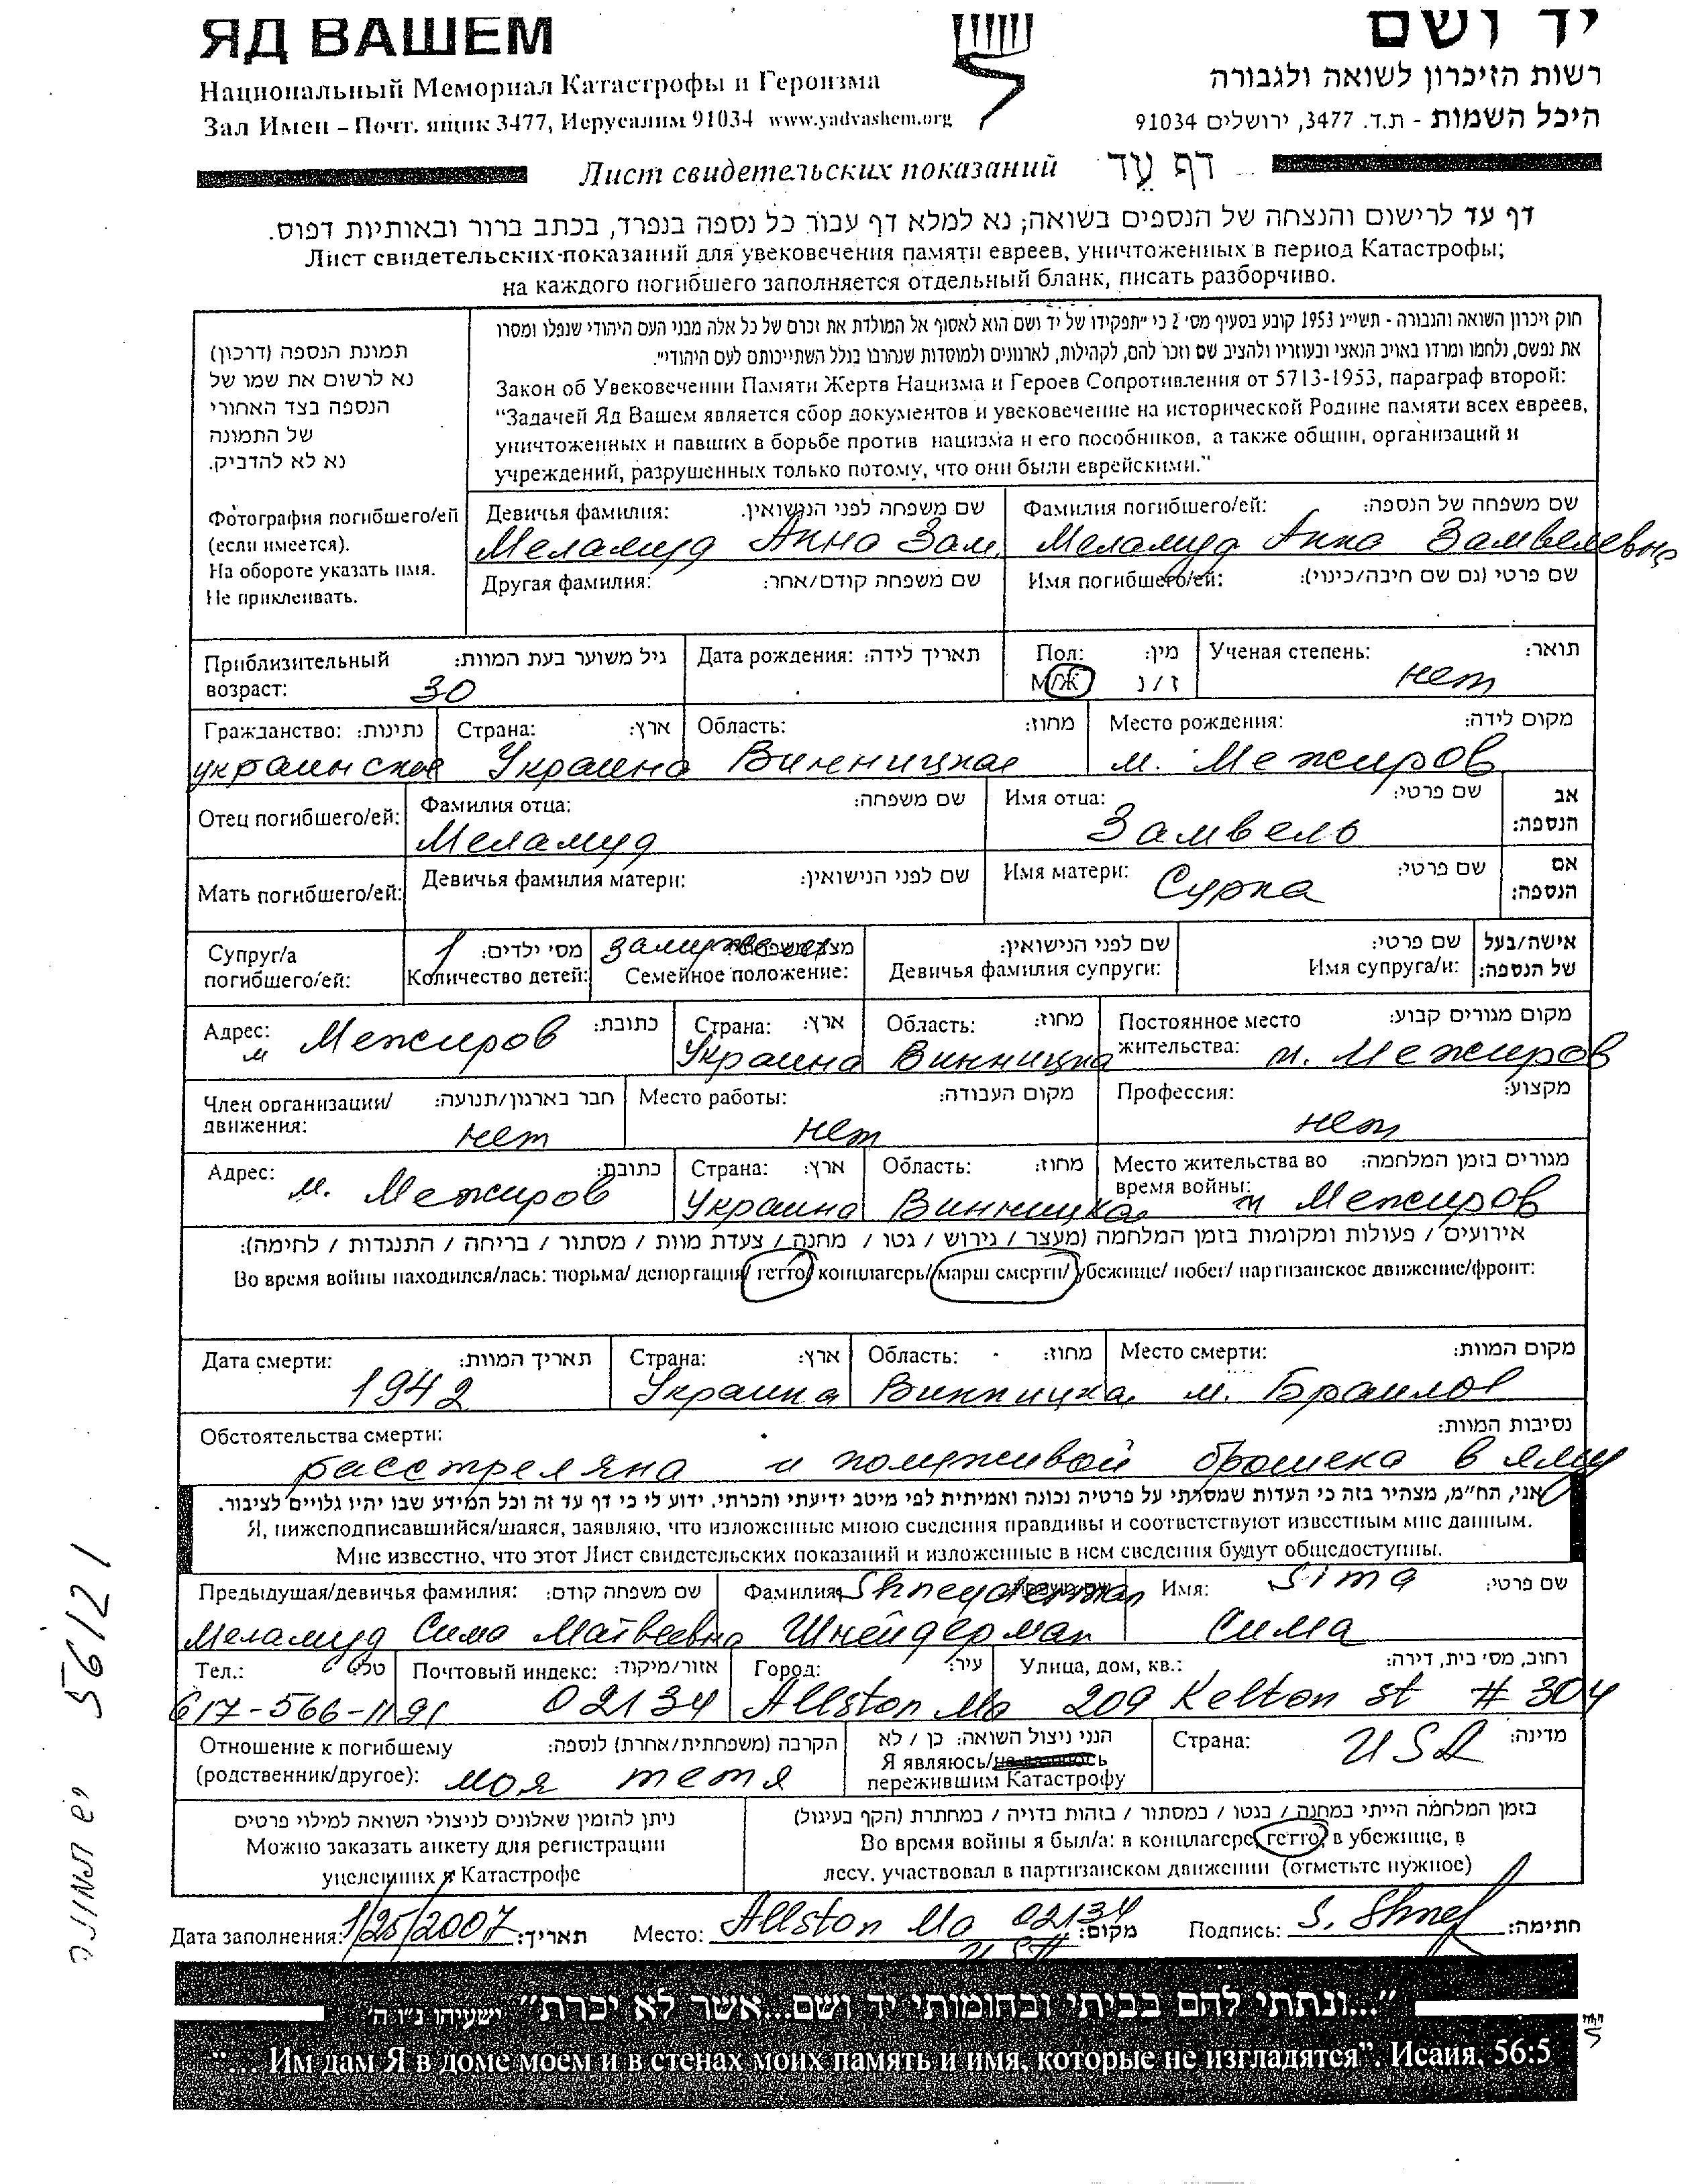 ЯД ВАШЕМ
יד ושם
Национальный Мемориал Катастрофы и Героизма
רשות הזיכרון לשואה ולגבורה
Зал Имен – Почт. ящик 3477, Иерусалим 91034 www.yadvashem.org
היכל השמות - ת.ד. 3477, ירושלים 91034
Лист свидетельских показаний דף עֵד
דף עד לרישום והנצחה של הנספים בשואה; נא למלא דף עבור כל נספה בנפרד, בכתב ברור ובאותיות דפוס.
Лист свидетельских показаний для увековечения памяти евреев, уничтоженных в период Катастрофы;
на каждого погибшего заполняется отдельный бланк, писать разборчиво.
תמונת הנספה (דרכון)
נא לרשום את שמו של
הנספה בצד האחורי
של התמונה
נא לא להדביק.
Фотография погибшего/ей
(если имеется).
На обороте указать имя.
Не приклеивать.
חוק זיכרון השואה והגבורה - תשי״ג 1953 קובע בסעיף מס׳ 2 כי ״תפקידו של יד ושם הוא לאסוף אל המולדת את זכרם של כל אלה מבני העם היהודי שנפלו ומסרו
את נפשם, נלחמו ומרדו באויב הנאצי ובעוזריו ולהציב שם וזכר להם, לקהילות, לארגונים ולמוסדות שנחרבו בגלל השתייכותם לעם היהודי״.
Закон об Увековечении Памяти Жертв Нацизма и Героев Сопротивления от 5713-1953, параграф второй:
“Задачей Яд Вашем является сбор документов и увековечение на исторической Родине памяти всех евреев,
уничтоженных и павших в борьбе против нацизма и его пособников, а также общин, организаций и
учреждений, разрушенных только потому, что они были еврейскими.”
Девичья фамилия: שם משפחה לפני הנישואין: Фамилия погибшего/ей: שם משפחה של הנספה:
Меламуд Анна Зам. Меламуд Анна Замвелевна
Другая фамилия: שם משפחה קודם/אחר: Имя погибшего/ей: שם פרטי (גם שם חיבה/כינוי):
Приблизительный возраст: גיל משוער בעת המוות: 30
Дата рождения: תאריך לידה:
Пол: מין: М/Ж ז / נ
Ученая степень: תואר: нет
Гражданство: נתינות: Страна: ארץ: Область: מחוז: Место рождения: מקום לידה:
украинское Украина Винницкая м. Межиров
Отец погибшего/ей: Фамилия отца: שם משפחה: Имя отца: שם פרטי: אב הנספה:
Меламуд Замвель
Мать погибшего/ей: Девичья фамилия матери: שם לפני הנישואין: Имя матери: שם פרטי: אם הנספה:
Сурка
Супруг/а погибшего/ей: 1 מסי ילדים: Количество детей: замужем Семейное положение: שם לפני הנישואין: Девичья фамилия супруги: שם פרטי: Имя супруга/и: אישה/בעל של הנספה:
Адрес: כתובת: Страна: ארץ: Область: מחוז: Постоянное место жительства: מקום מגורים קבוע:
м Межиров Украина Винницка м. Межиров
Член организации/движения: חבר בארגון/תנועה: Место работы: מקום העבודה: Профессия: מקצוע:
нет нет нет
Адрес: כתובת: Страна: ארץ: Область: מחוז: Место жительства во время войны: מגורים בזמן המלחמה:
м. Межиров Украина Винницкая м Межиров
אירועים / פעולות ומקומות בזמן המלחמה (מעצר / גירוש / גטו / מחנה / צעדת מוות / מסתור / בריחה / התנגדות / לחימה):
Во время войны находился/лась: тюрьма/ депортация/ гетто/ концлагерь/ марш смерти/ убежище/ побег/ партизанское движение/фронт:
Дата смерти: תאריך המוות: Страна: ארץ: Область: מחוז: Место смерти: מקום המוות:
1942 Украина Винницка м. Браилов
Обстоятельства смерти: נסיבות המוות:
расстреляна и полуживой брошена в яму
אני, הח״מ, מצהיר בזה כי העדות שמסרתי על פרטיה נכונה ואמיתית לפי מיטב ידיעתי והכרתי. ידוע לי כי דף עד זה וכל המידע שבו יהיו גלויים לציבור.
Я, нижеподписавшийся/шаяся, заявляю, что изложенные мною сведения правдивы и соответствуют известным мне данным.
Мне известно, что этот Лист свидетельских показаний и изложенные в нем сведения будут общедоступны.
Предыдущая/девичья фамилия: שם משפחה קודם: Фамилия: Shneyderman Имя: Sima שם פרטי:
Меламуд Сима Матвеевна Шнейдерман Сима
Тел.: טל: Почтовый индекс: אזור/מיקוד: Город: עיר: Улица, дом, кв.: רחוב, מס׳ בית, דירה:
617-566-1191 02134 Allston Ma 209 Kelton st # 304
Отношение к погибшему (родственник/другое): הקרבה (משפחתית/אחרת) לנספה: моя тетя
הנני ניצול השואה: כן / לא
Я являюсь/не являюсь
пережившим Катастрофу
Страна: USA מדינה:
ניתן להזמין שאלונים לניצולי השואה למילוי פרטים
Можно заказать анкету для регистрации
уцелевших в Катастрофе
בזמן המלחמה הייתי במחנה / בגטו / במסתור / בזהות בדויה / במחתרת (הקף בעיגול)
Во время войны я был/а: в концлагере, гетто, в убежище, в
лесу, участвовал в партизанском движении (отметьте нужное)
Дата заполнения: 1/25/2007 תאריך: Место: Allston Ma 02134 USA מקום: Подпись: S. Shney חתימה:
“...ונתתי להם בביתי ובחומותי יד ושם...אשר לא יכרת” ישעיהו נ״ו ה׳
“... Им дам Я в доме моем и в стенах моих память и имя, которые не изгладятся”. Исаия, 56:5
יש תמונה 56121